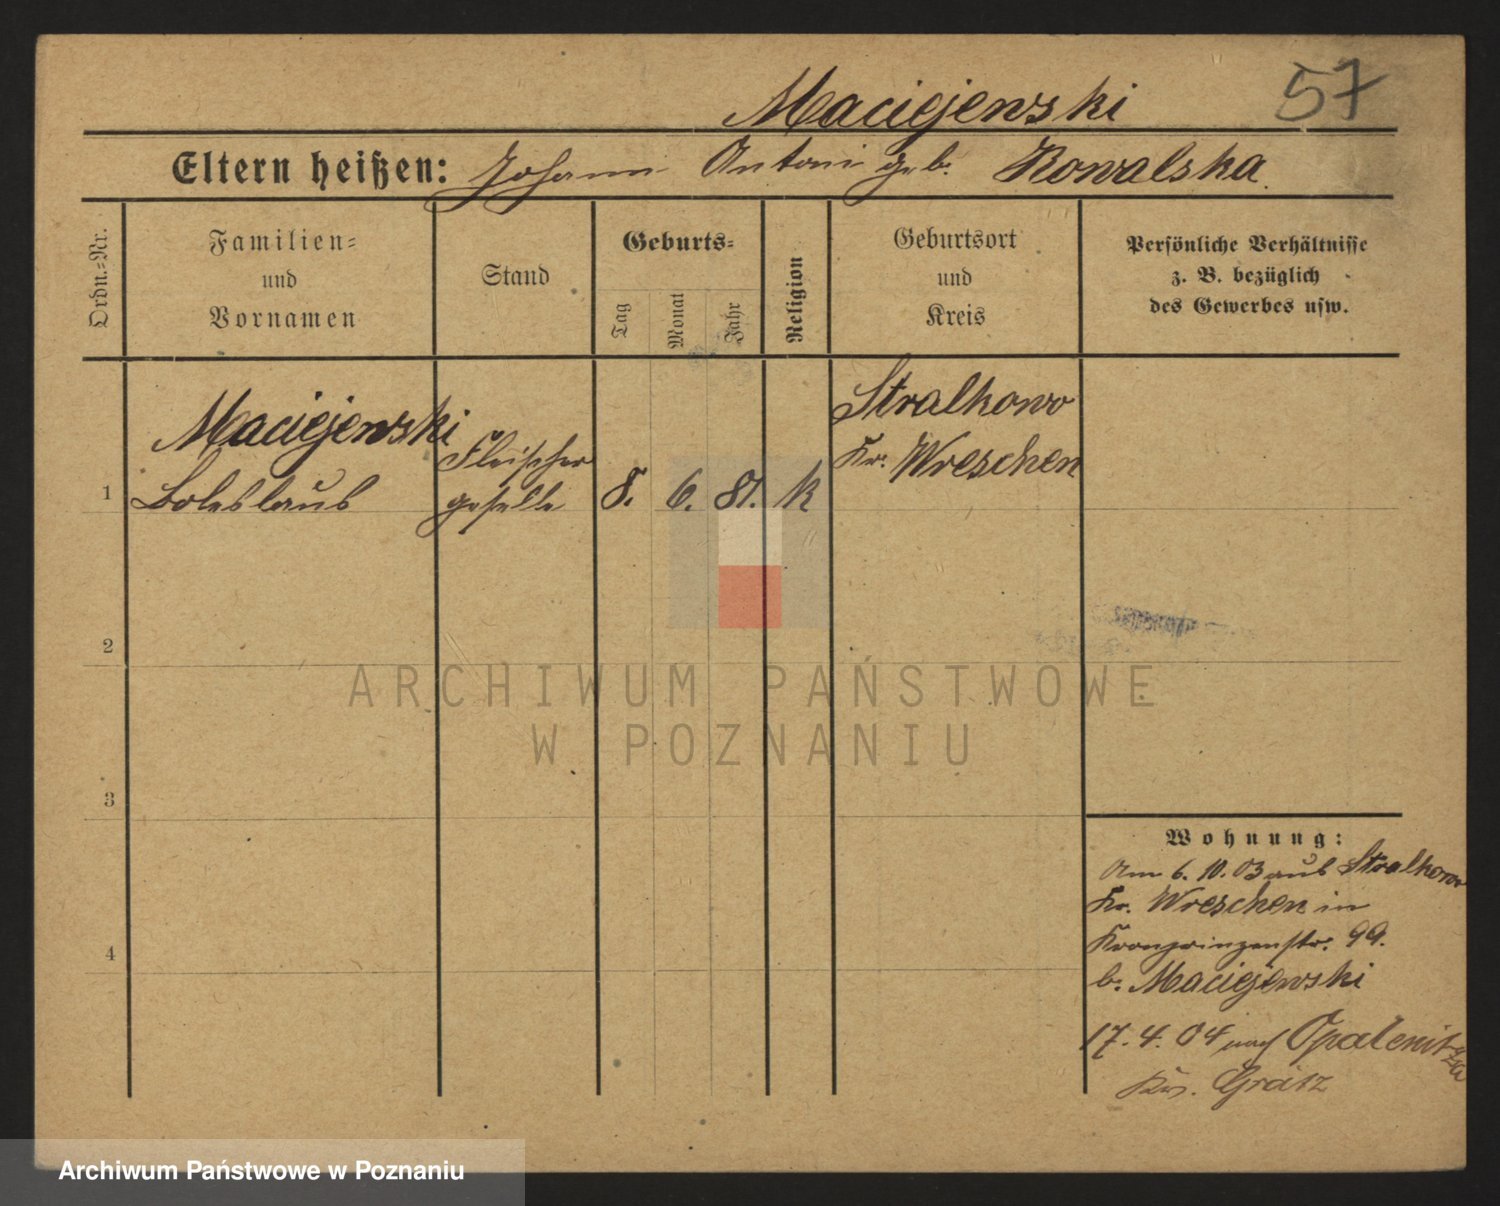 57
Maciejewski
Eltern heißen: Johann Antoni geb. Kowalska
Ordn.=Nr.
Familien=
und
Vornamen
Stand
Geburts=
Tag
Monat
Jahr
Religion
Geburtsort
und
Kreis
Persönliche Verhältnisse
z. B. bezüglich
des Gewerbes usw.
1
Maciejewski
Boleslaus
Fleischer
geselle
8. 6. 81. k
Stralkowo
Kr. Wreschen
2
3
4
Wohnung:
Am 6. 10. 03 aus Stralkowo
Kr. Wreschen in
Kronprinzenstr. 99.
b. Maciejewski
17. 4. 04 nach Opalenitza
Krs. Grätz
ARCHIWUM PAŃSTWOWE
W POZNANIU
Archiwum Państwowe w Poznaniu